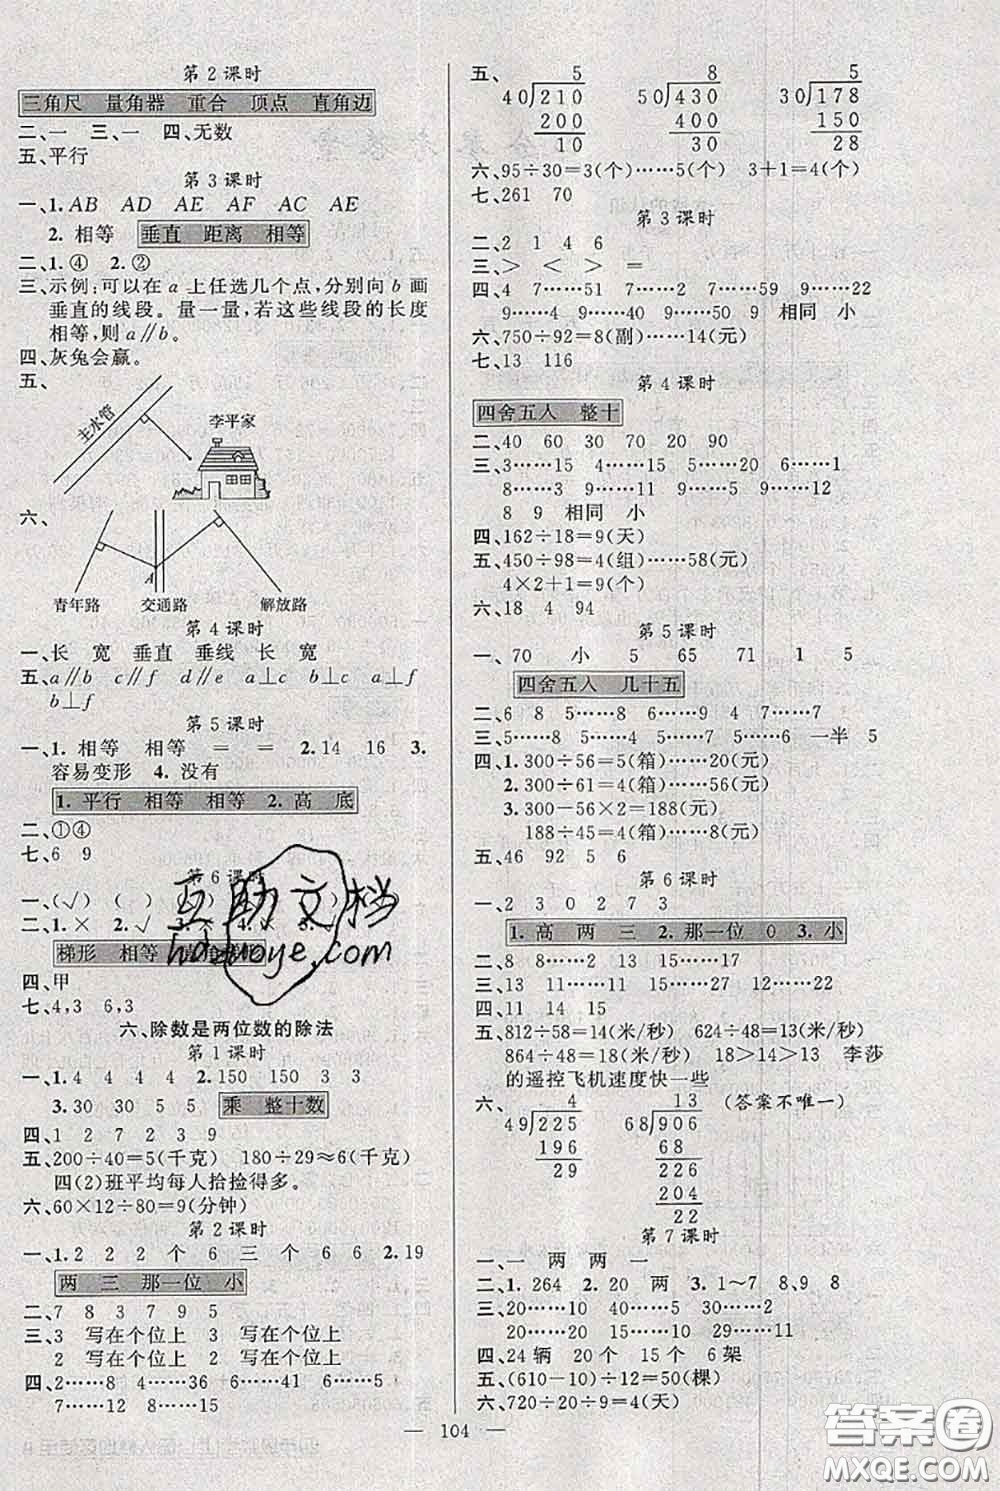 第2课时
三角尺 量角器 重合 顶点 直角边
二、一 三、一 四、无数
五、平行
第3课时
一、1. AB AD AE AF AC AE
2. 相等 垂直 距离 相等
二、1.④ 2.②
三、示例:可以在 a 上任选几个点,分别向 b 画
垂直的线段。量一量,若这些线段的长度
相等,则 a∥b。
四、灰兔会赢。
五、
主水管
李平家
六、
A
青年路 交通路 解放路
第4课时
一、长 宽 垂直 垂线 长 宽
五、a∥b c∥f d∥e a⊥c b⊥c a⊥f
b⊥f
第5课时
一、1. 相等 相等 = = 2.14 16 3.
容易变形 4. 没有
1. 平行 相等 相等 2. 高 底
二、①④
七、6 9
第6课时
一、(√) ( )
二、1.× 2.√
梯形 相等
四、甲
七、4,3 6,3
六、除数是两位数的除法
第1课时
一、1.4 4 4 2.150 150 3 3
3.30 30 5 5 乘 整十数
四、1 2 7 2 3 9
五、200÷40=5(千克) 180÷29≈6(千克)
四(2)班平均每人拾捡得多。
六、60×12÷80=9(分钟)
第2课时
一、1.2 2 2 个 6 三 个 6 6 2.19
两 三 那一位 小
二、7 8 3 7 9 5
三、3 写在个位上 3 写在个位上
2 写在个位上 2 写在个位上
四、2……8 4……36 6……6 6……5
7……12 8……15
五、 5 8 5
40)210 50)430 30)178
200 400 150
10 30 28
六、95÷30=3(个)……5(个) 3+1=4(个)
七、261 70
第3课时
二、2 1 4 6
三、> < > =
四、4 7……51 2 7……59 9……22
9……6 4 9……50 9 相同 小
六、750÷92=8(副)……14(元)
七、13 116
第4课时
四舍五入 整十
二、40 60 30 70 20 90
三、3……15 4……15 5……20 6……1
8……3 8……44 9……5 9……12
8 9 相同 小
四、162÷18=9(天)
五、450÷98=4(组)……58(元)
4×2+1=9(个)
六、18 4 94
第5课时
一、70 小 5 65 71 1 5
四舍五入 几十五
二、6 8 5……8 6……9 4 7……7
三、5……8 5……8 7……5 7……5 一半 5
四、1. 300÷56=5(箱)……20(元)
2. 300÷61=4(箱)……56(元)
3. 300-56×2=188(元)
188÷45=4(箱)……8(元)
五、46 92 5 6
第6课时
一、2 3 0 2 7 3
1. 高 两 三 2. 那一位 0 3. 小
二、8 8……2 13 15……17
三、13 11……25 17……22 21……6
四、11 14 15
五、812÷58=14(米/秒) 624÷48=13(米/秒)
864÷48=18(米/秒) 18>14>13 李莎
的遥控飞机速度快一些
六、 4 13 (答案不唯一)
49)225 68)906
196 68
29 226
204
22
第7课时
一、一 两 两 一
二、1. 264 2. 20 两 3. 1~7 8,9 8
三、20……10 10……40 20……15
20……25 10……33 10……20
四、24 辆 20 个 15 个 6 架
五、(610-10)÷12=50(棵)
六、720÷20÷9=4(天)
— 104 —
互助文档
huzuoye.com
答案圈
MXQE.COM